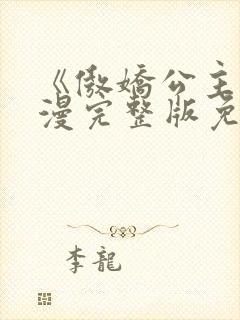 《傲嬌公主
漫完整版免
李龍